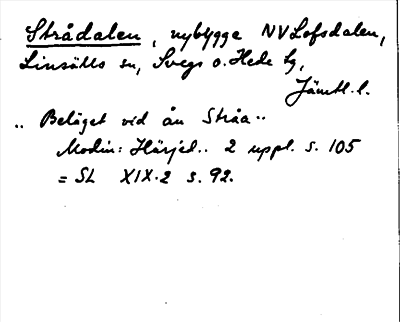 Strådalen, nybygge NV Lofsdalen,
Linsälls sn, Svegs o. Hede tg,
Jämtl. l.
„ Beläget vid ån Stråa „
Modin: Härjed.. 2 uppl. s. 105
= SL XIX.2 s. 92.